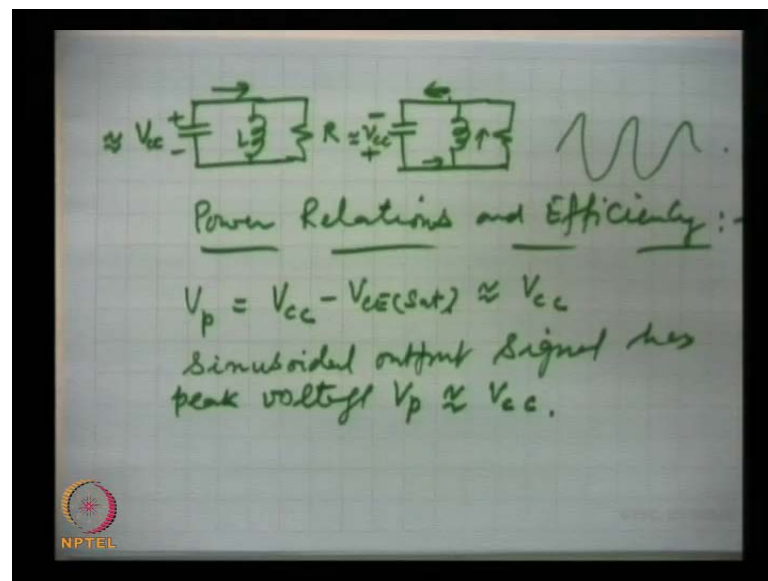 ≈ Vcc + - L R ≈ Vcc - +
Power Relations and Efficiency :-
Vp = Vcc - VCE(Sat) ≈ Vcc
Sinusoidal output signal has
peak voltage Vp ≈ Vcc.
NPTEL